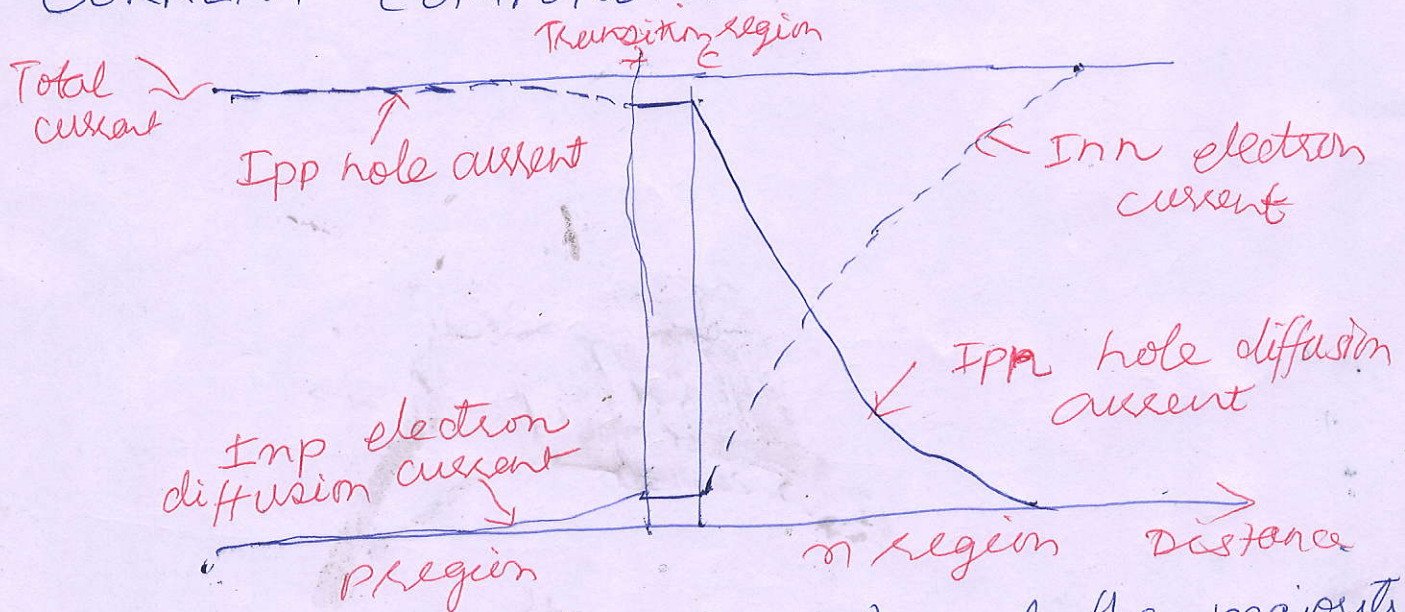 CURRENT
Transition region
Total
current
Ipp hole current
Inn electron
current
Ipn hole diffusion
current
Inp electron
diffusion current
p region
n region
Distance